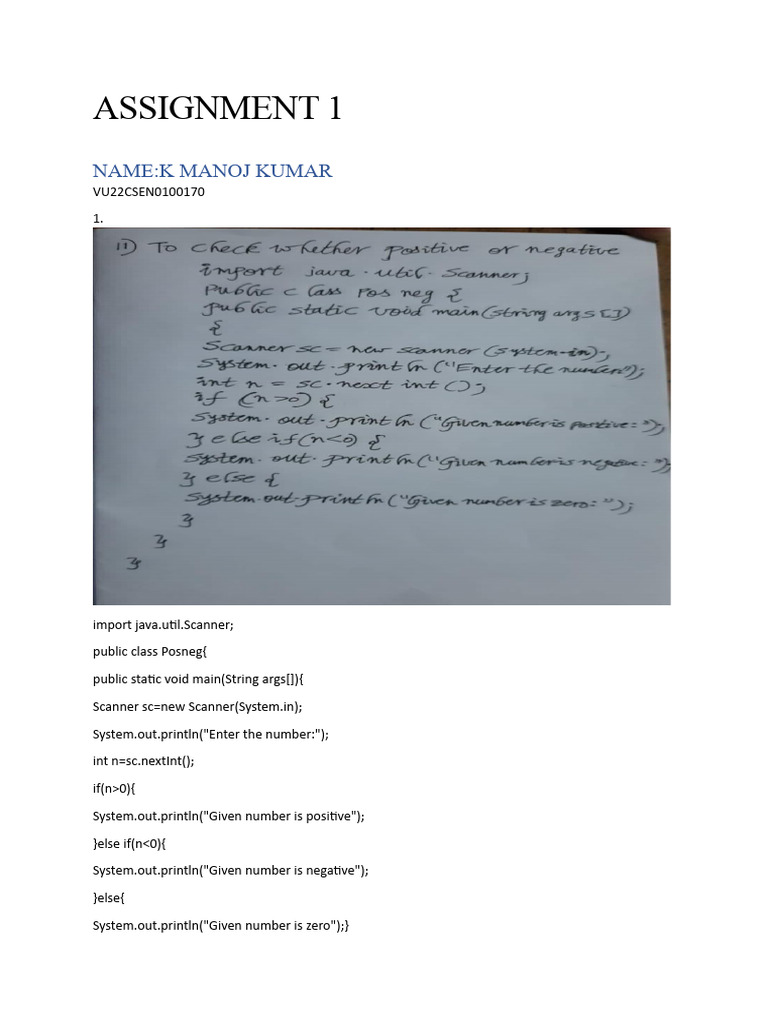 ASSIGNMENT 1
NAME:K MANOJ KUMAR
VU22CSEN0100170
1.
11) To check whether positive or negative
import java.util.Scanner;
public class Pos neg {
public static void main(string args[])
{
Scanner sc = new scanner (system.in);
System.out.println ("Enter the number");
int n = sc.next int ();
if (n>0) {
System.out.println ("Given number is positive: ");
} else if(n<0) {
System.out.println ("Given number is negative: ");
} else {
System.out.println ("Given number is zero: ");
}
}
}
import java.util.Scanner;
public class Posneg{
public static void main(String args[]){
Scanner sc=new Scanner(System.in);
System.out.println("Enter the number:");
int n=sc.nextInt();
if(n>0){
System.out.println("Given number is positive");
}else if(n<0){
System.out.println("Given number is negative");
}else{
System.out.println("Given number is zero");}